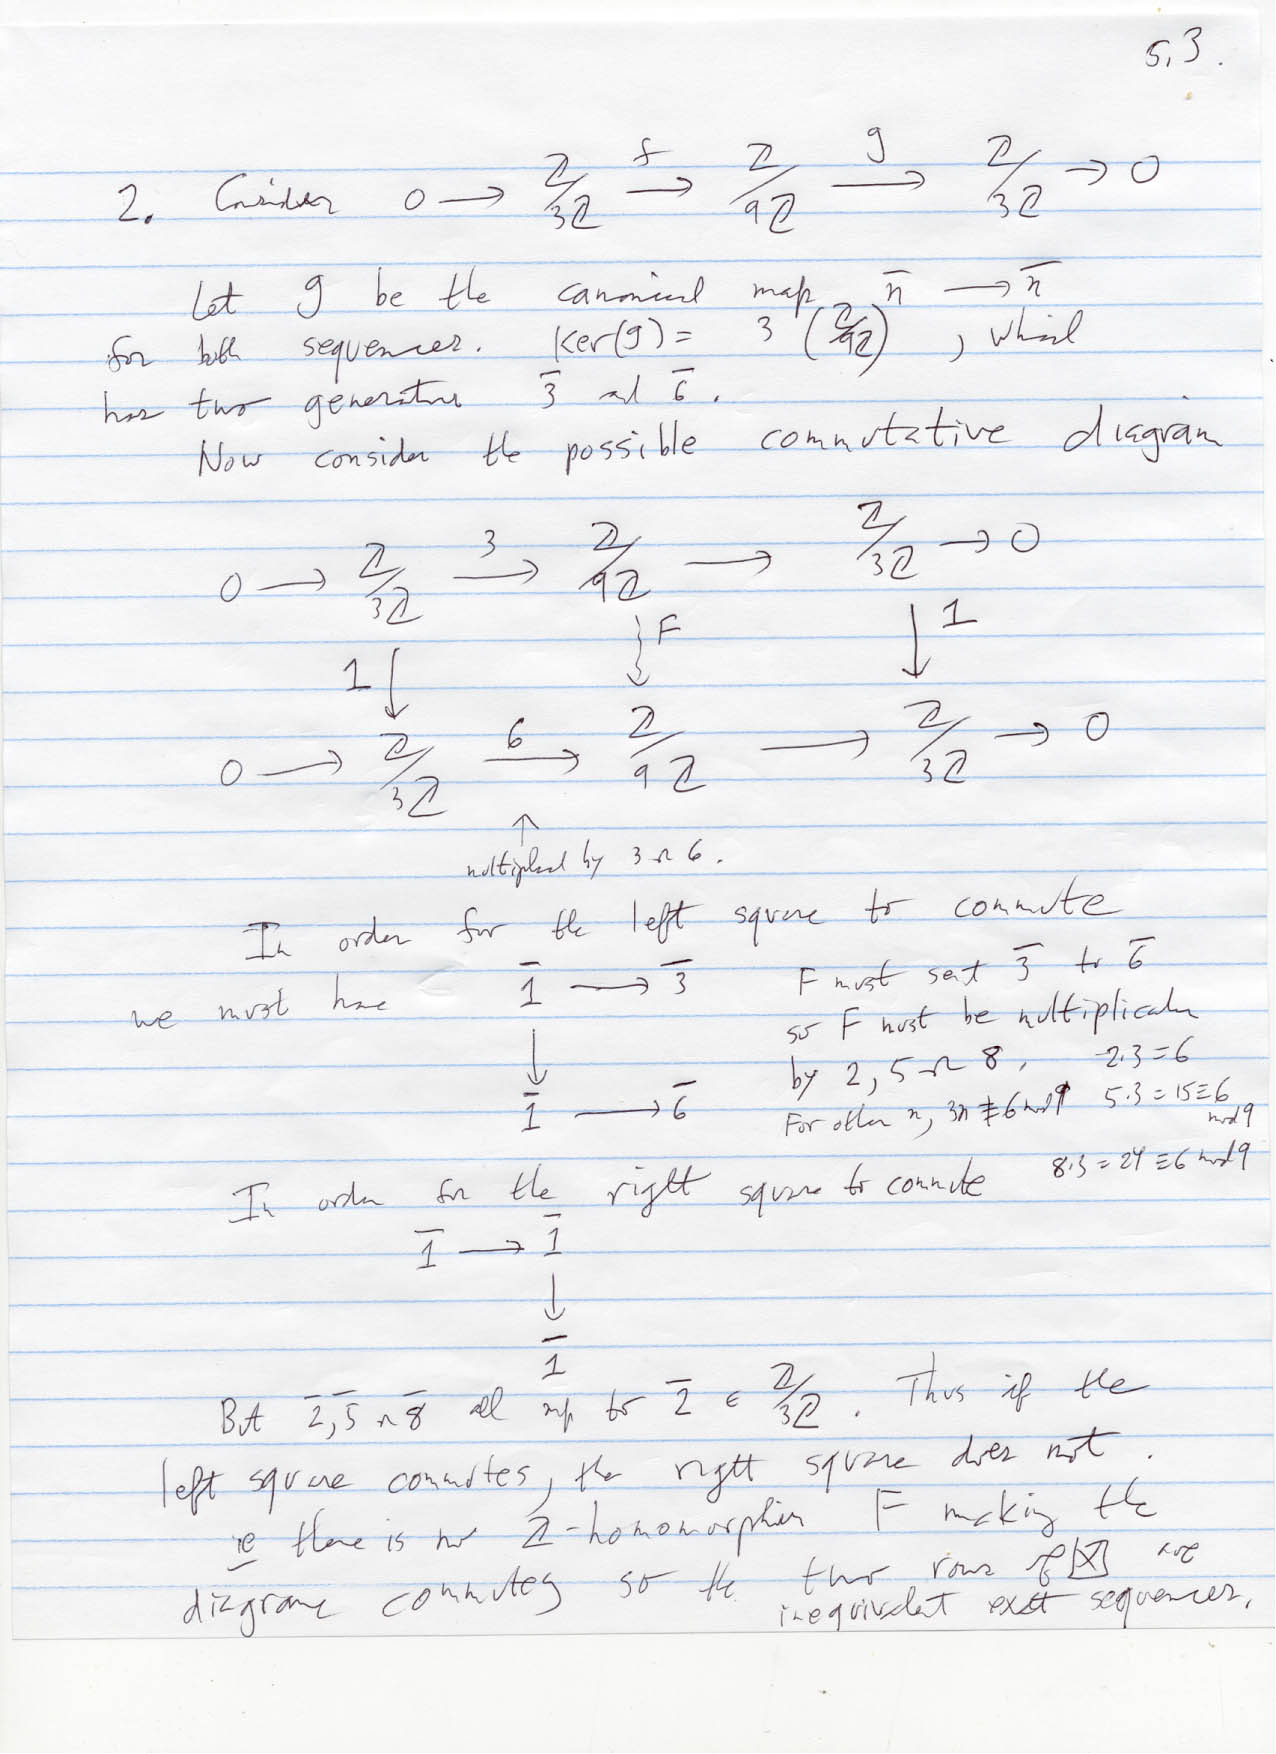 5.3.
2. Consider 0 → Z/3Z →f Z/9Z →g Z/3Z → 0
Let g be the canonical map n̄ → n̄
for both sequences. Ker(g) = 3 (Z/9Z), which
has two generators 3̄ and 6̄.
Now consider the possible commutative diagram
0 → Z/3Z →3 Z/9Z → Z/3Z → 0
1 ↓ ↓ F ↓ 1
0 → Z/3Z →6 Z/9Z → Z/3Z → 0
↑
multiplied by 3 or 6.
In order for the left square to commute
we must have 1̄ → 3̄
↓
1̄ → 6̄
F must sent 3̄ to 6̄
so F must be multiplication
by 2, 5 or 8, 2·3 = 6
For other n, 3n ≢ 6 mod 9 5·3 = 15 ≡ 6
mod 9
8·3 = 24 ≡ 6 mod 9
In order for the right square to commute
1̄ → 1̄
↓
1̄
But 2̄, 5̄ or 8̄ all map to 2̄ ∈ Z/3Z. Thus if the
left square commutes, the right square does not.
ie there is no Z-homomorphism F making the
diagram commutes so the two rows of are
inequivalent exact sequences.